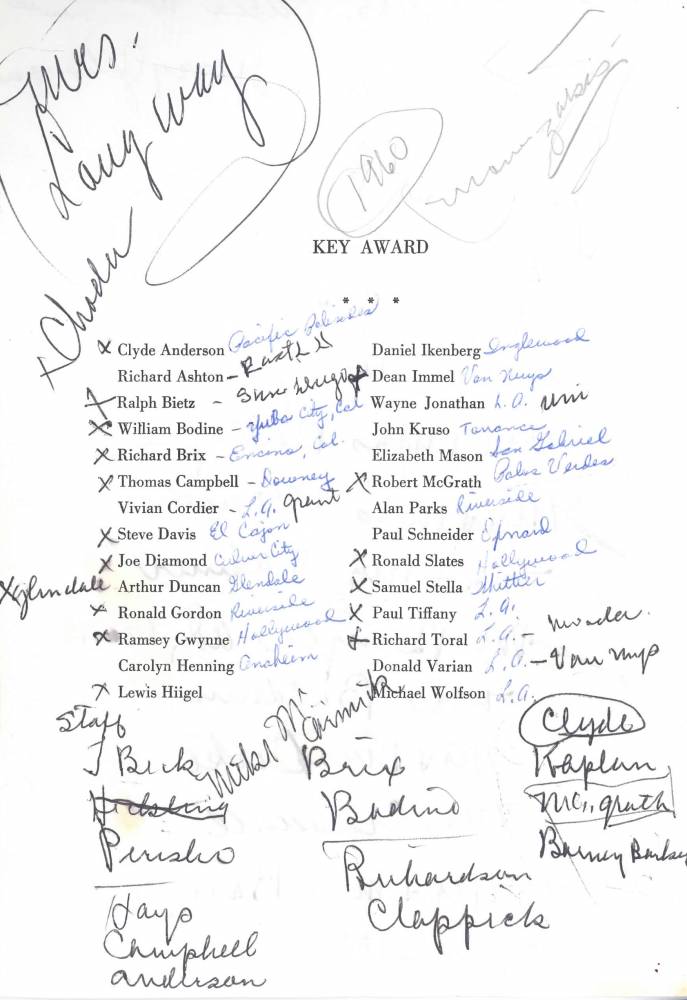 Mrs.
Long way
+ Choder
1960
KEY AWARD
* * *
X Clyde Anderson Pacific Palisades
Richard Ashton –
Ralph Bietz –
X William Bodine – Yuba City, Cal
X Richard Brix – Encino, Cal.
X Thomas Campbell – Downey
Vivian Cordier – L.A. Grant
X Steve Davis El Cajon
X Joe Diamond Culver City
X glendale Arthur Duncan Glendale
x Ronald Gordon Riverside
x Ramsey Gwynne Hollywood
Carolyn Henning Anaheim
x Lewis Hiigel
Daniel Ikenberg Inglewood
Dean Immel Van Nuys
Wayne Jonathan L.A. Uni
John Kruso Torrance
Elizabeth Mason San Gabriel
X Robert McGrath Palos Verdes
Alan Parks Riverside
Paul Schneider
X Ronald Slates Hollywood
X Samuel Stella Whittier
X Paul Tiffany L.A.
Richard Toral L.A. –
Donald Varian L.A. – Van nuys
Michael Wolfson L.A.
Staff
J Beck
Perisho
Hays
Campbell
Anderson
Mike McCormick
Brix
Bodine
Richardson
Clappick
Clyde
Kaplan
McGrath
Barney